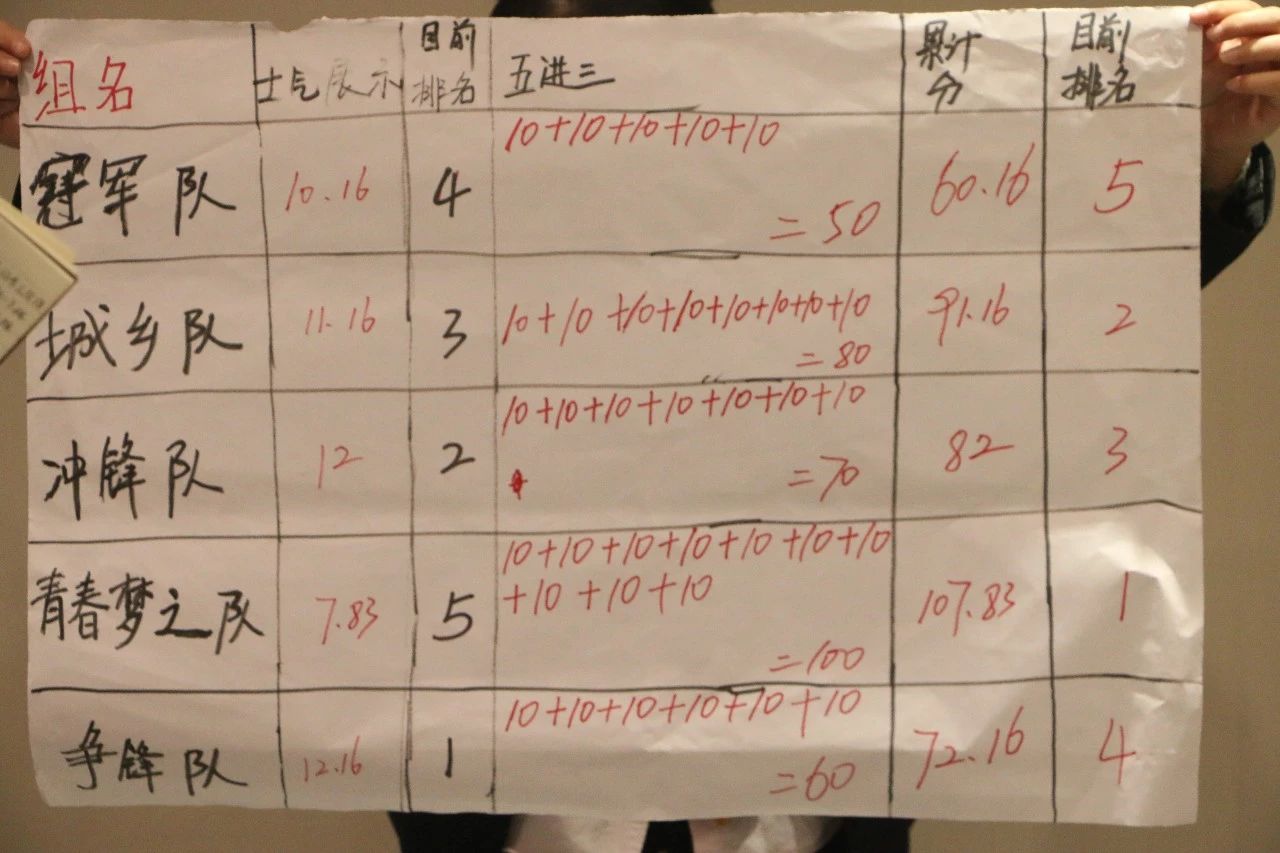 组名 士气展示 目前排名 五进三 累计分 目前排名
冠军队 10.16 4 10+10+10+10+10 =50 60.16 5
城乡队 11.16 3 10+10+10+10+10+10+10+10 =80 91.16 2
冲锋队 12 2 10+10+10+10+10+10+10 =70 82 3
青春梦之队 7.83 5 10+10+10+10+10+10+10 +10+10+10 =100 107.83 1
争锋队 12.16 1 10+10+10+10+10+10 =60 72.16 4